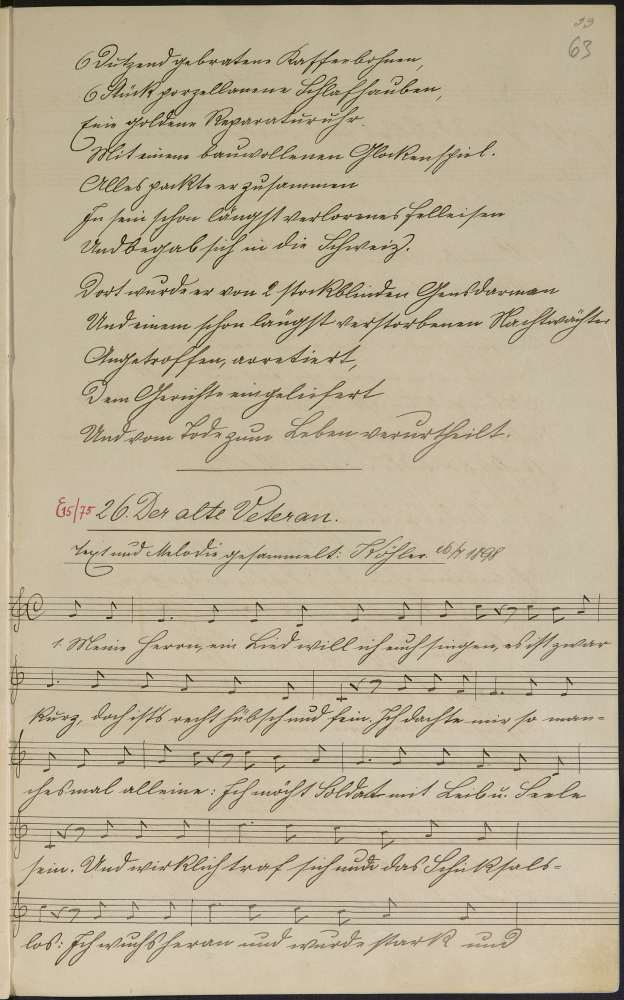 33
63
6 Dutzend gebratene Kaffeebohnen,
6 Stück porzellanene Schlafhauben,
Eine goldene Reparaturuhr
Mit einem bauwollenen Glockenspiel.
Alles packte er zusammen
In sein schon längst verlorenes Felleisen
Und begab sich in die Schweiz.
Dort wurde er von 2 stockblinden Gensdarmen
Und einem schon längst verstorbenen Nachtwächter
Angetroffen, arretiert,
Dem Gerichte eingeliefert
Und vom Tode zum Leben verurtheilt.
E 15/75 26. Der alte Veteran.
Text und Melodie gesammelt: Köhler 1898
1. Meine Herrn, ein Lied will ich euch singen, es ist zwar
kurz, doch ist's recht hübsch und fein. Ich dachte mir so man-
chesmal alleine: Ich möcht Soldat mit Leib u. Seele
sein. Und wirklich traf sich nun das Schicksals-
los: Ich wuchs heran und wurde stark und